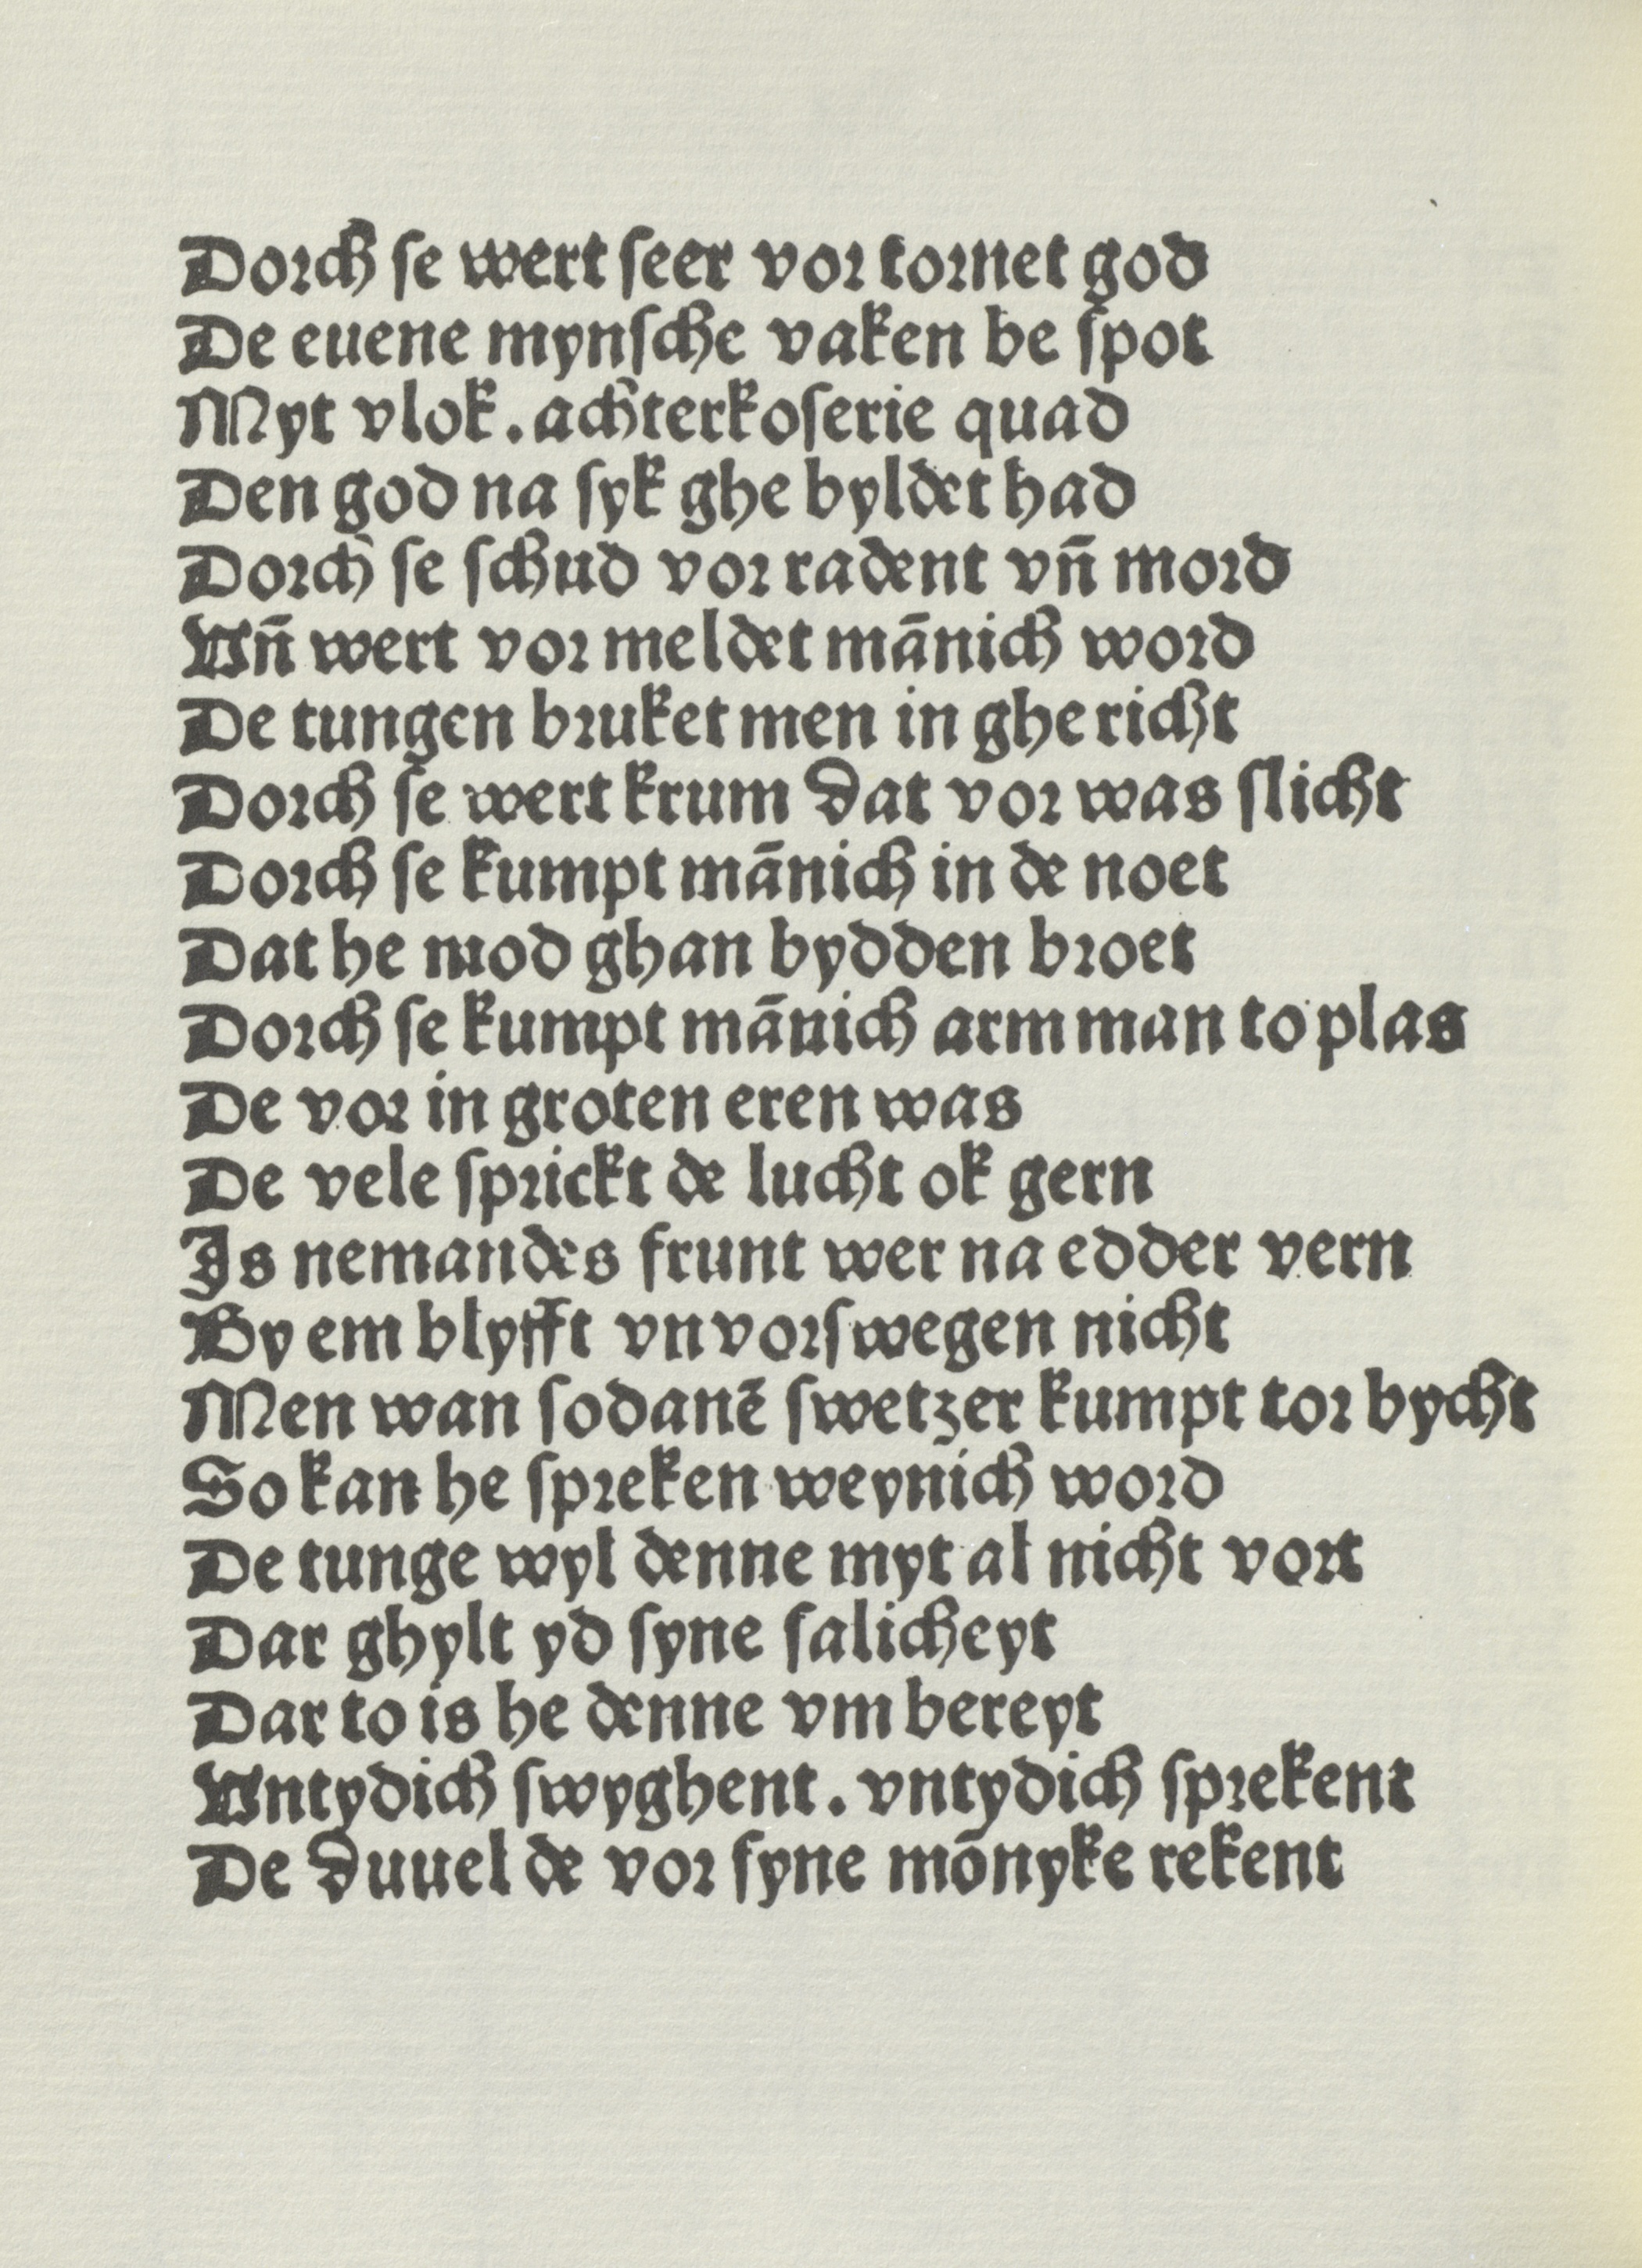 Dorch se wert seer vor tornet god
De euene mynsche vaken be spot
Myt vlok . achterkoserie quad
Den god na syk ghe byldet had
Dorch se schud vor radent vn̄ mord
Vn̄ wert vor meldet mānich word
De tungen bruket men in ghe richt
Dorch se wert krum dat vor was slicht
Dorch se kumpt mānich in de noet
Dat he mod ghan bydden broet
Dorch se kumpt mānich arm man to plas
De vor in groten eren was
De vele sprickt de lucht ok gern
Is nemandes frunt wer na edder vern
By em blyfft vnvorswegen nicht
Men wan sodanē swetzer kumpt tor bycht
So kan he spreken weynich word
De tunge wyl denne myt al nicht vort
Dar ghylt yd syne salicheyt
Dar to is he denne vm bereyt
Vntydich swyghent . vntydich sprekent
De duuel de vor syne mōnyke rekent